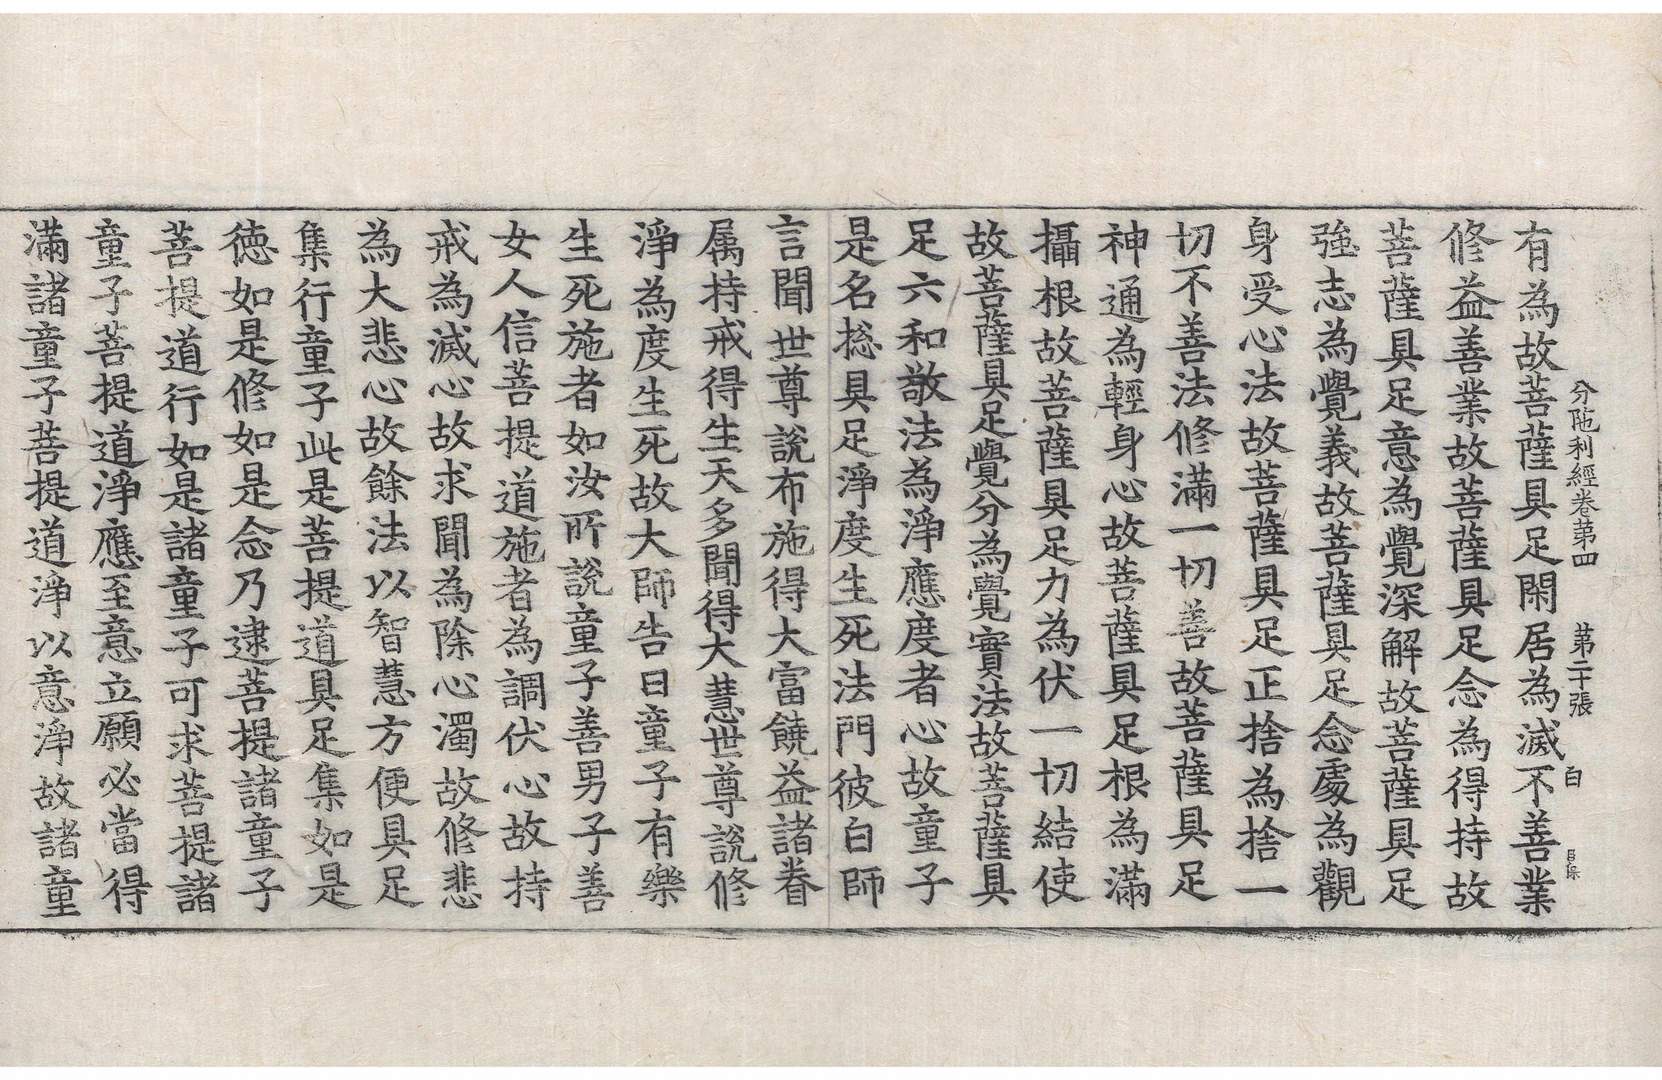 分陁利經卷第四 第二十張 白
有為故菩薩具足閑居為滅不善業
修益善業故菩薩具足念為得持故
菩薩具足意為覺深解故菩薩具足
強志為覺義故菩薩具足念處為觀
身受心法故菩薩具足正捨為捨一
切不善法修滿一切善故菩薩具足
神通為輕身心故菩薩具足根為滿
攝根故菩薩具足力為伏一切結使
故菩薩具足覺分為覺實法故菩薩具
足六和敬法為淨應度者心故童子
是名捴具足淨度生死法門彼白師
言聞世尊說布施得大富饒益諸眷
属持戒得生天多聞得大慧世尊說修
淨為度生死故大師告曰童子有樂
生死施者如汝所說童子善男子善
女人信菩提道施者為調伏心故持
戒為滅心故求聞為除心濁故修悲
為大悲心故餘法以智慧方便具足
集行童子此是菩提道具足集如是
徳如是修如是念乃逮菩提諸童子
菩提道行如是諸童子可求菩提諸
童子菩提道淨應至意立願必當得
滿諸童子菩提道淨以意淨故諸童